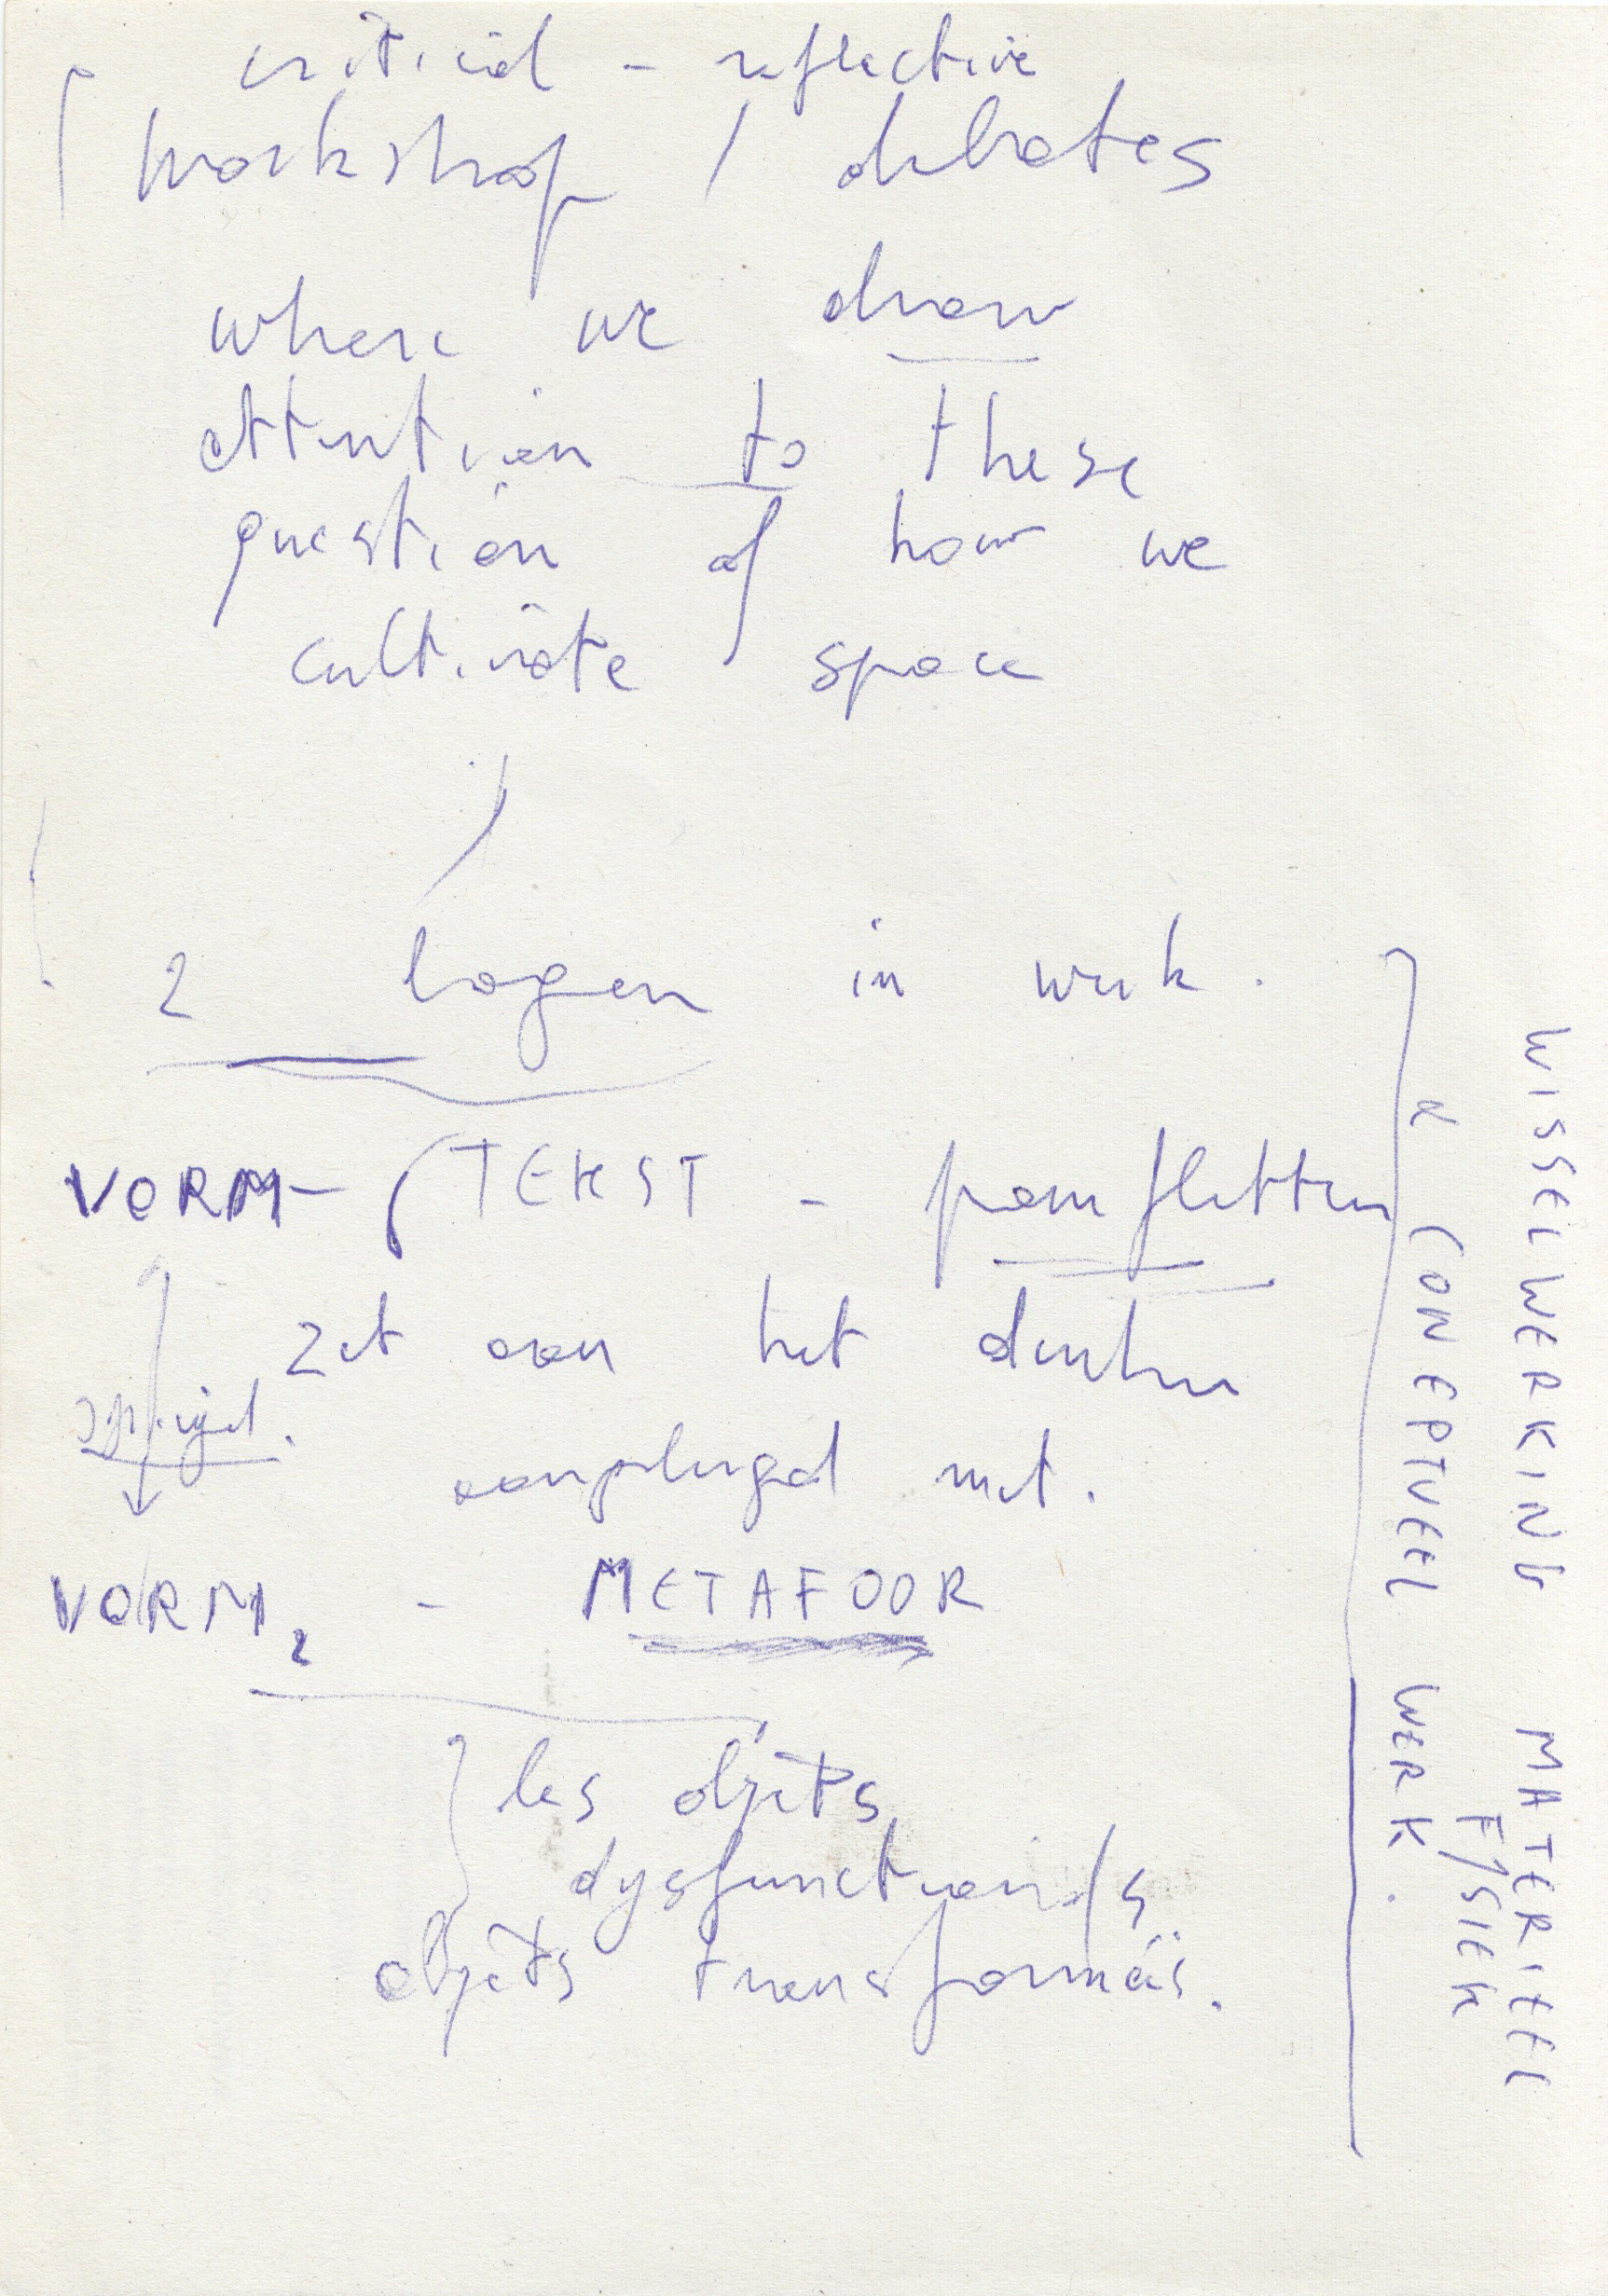 critical - reflective
workshop / debates
where we draw
attention to these
question of how we
cultivate space
2 lagen in werk.
VORM - (TEKST - pamfletten
zet aan het denken
spiegel.
aangelengd met.
VORM 2 - METAFOOR
les objets
dysfunctionels
objets transformés.
WISSELWERKING MATERIEEL
FYSIEK
& CONCEPTUEEL WERK.